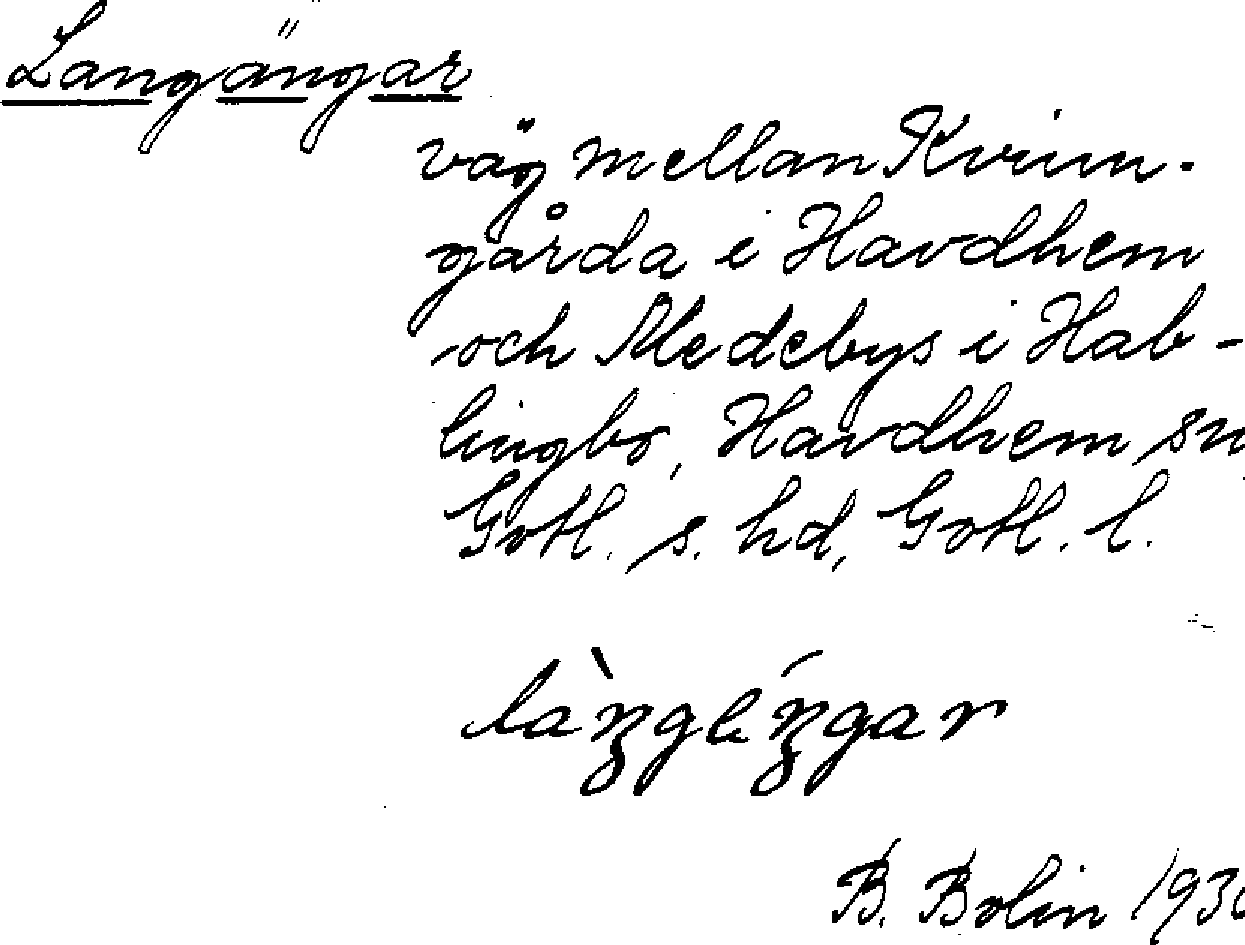 Langängar
väg mellan Kvinn-
gårda i Havdhem
och Medebys i Hab-
lingbo, Havdhem sn
Gotl. s. hd, Gotl. l.
B. Bolin